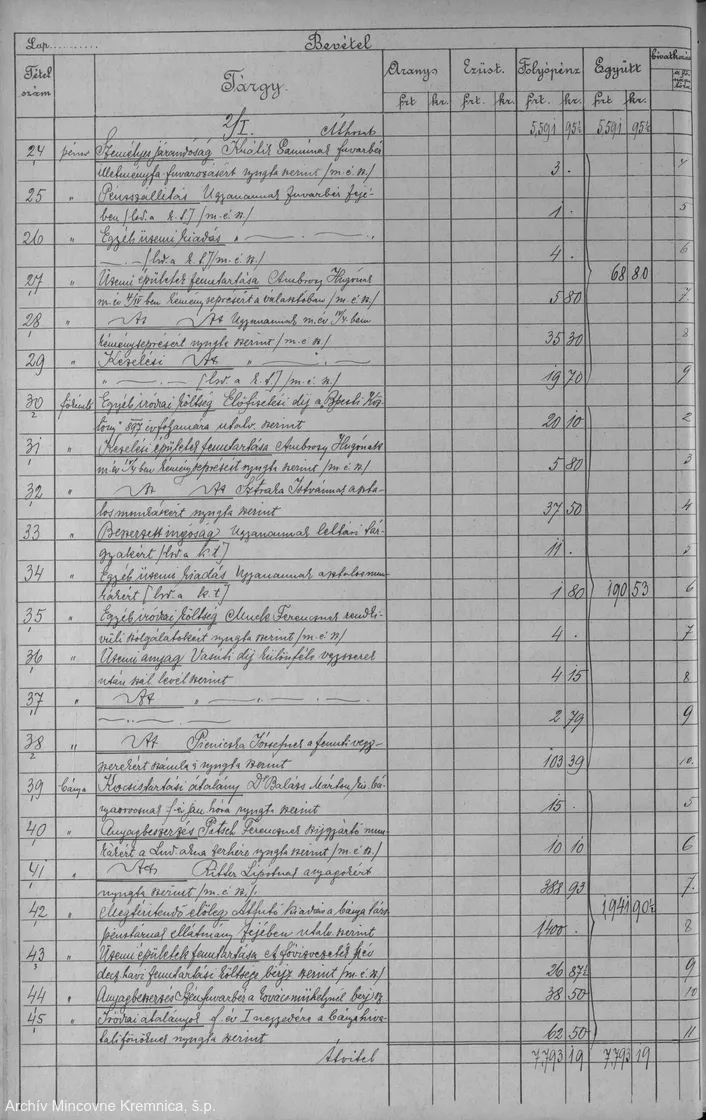 Lap.......... Bevétel
Tétel szám Tárgy. Arany Ezüst. Folyópénz Együtt hivatkozás
frt. kr. frt. kr. frt. kr. frt. kr.
2/I. Áthozat 5,591 95½ 5,591 95½
24 Személyes járandóság Samunak fuvarbér
illetményfa fuvarozásért nyugta szerint /m. é. sz/ 3 . 4
25 " Pénzszállitás Ugyanannak fuvarbér fejé-
ben [lsd. a k. t.] /m. é. sz/ 1 . 5
26 " Egyéb üzemi kiadás "
[lsd. a k. t.] /m. é. sz/ 4 . 6
68 80
27 " Üzemi épületek fenntartása Ambrosy Hugónak
m. év ben kéményseprésért a választóban /m. é. sz/ 5 80 7.
28 " Ugyanannak m. év ben
kéményseprésért nyugta szerint /m. é. sz/ 35 30 8
29 " Kezelési "
" [lsd. a k. t.] /m. é. sz/ 19 70 9
30 Egyéb irodai költség Előfizetési dij a "Pesti
897 évfolyamára utalv. szerint 20 10 2
31 " Kezelési épületek fenntartása Ambrosy Hugónak
m. év ben kéményseprésért nyugta szerint /m. é. sz/ 5 80 3
32 " Sztraka Istvánnak aszta-
los munkákért nyugta szerint 37 50 4
33 " Beszerzett ingóság Ugyanannak leltári tár-
gyakért [lsd. a k. t.] 11 . 5
34 " Egyéb üzemi kiadás Ugyanannak asztalos mun-
kákért [lsd. a k. t.] 1 80 190 53 6
35 " Egyéb irodai költség Muck Ferencznek rendki-
vüli szolgálatokért nyugta szerint /m. é. sz/ 4 . 7
36 " Üzemi anyag Vasúti dij különféle vegyszerek
után száll. levél szerint 4 15 8
37 " "
2 79 9
38 " Józsefnek a fennti vegy-
szerekért számla s nyugta szerint 103 39 10.
39 bánya Kocsitartási átalány Dr Balázs Márton kir. bá-
nyaorvosnak f. é. jan. hóra nyugta szerint 15 . 5
40 " Anyagbeszerzés Patsch Ferencznek szijgyártó mun-
kákért a Lud. akna terhére nyugta szerint /m. é. sz/ 10 10 6
41 " Ritter Lipótnak anyagokért
nyugta szerint /m. é. sz/. 388 93 7.
1941 90½
42 " Megtéritendő előleg Átfutó kiadás a bányatárs-
pénztárnak ellátmány fejében utalv. szerint 1400 . 8
43 " Üzemi épületek fenntartása A Hév
fenntartási költsége bérj. szerint /m. é. sz/ 26 87½ 9
44 " Anyagbeszerzés Szénfuvarbér a kovácsműhelynél bérj. sz. 38 50 10
45 " Irodai átalányok f. év I negyedére a bányahiva-
talfőnöknek nyugta szerint 62 50 11
Átvitel 7,793 19 7,793 19
Archív Mincovne Kremnica, š.p.